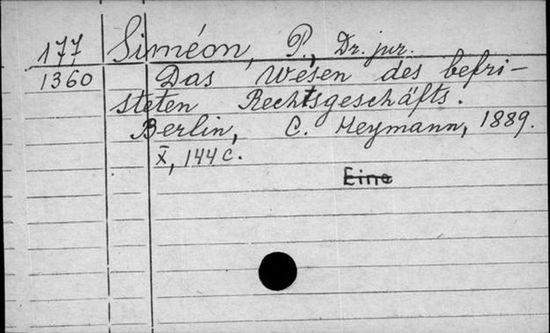 177 Siméon, P., Dr. jur.
1360 Das Wesen des befri-
steten Rechtsgeschäfts.
Berlin, C. Heymann, 1889.
X, 144 c.
Eine